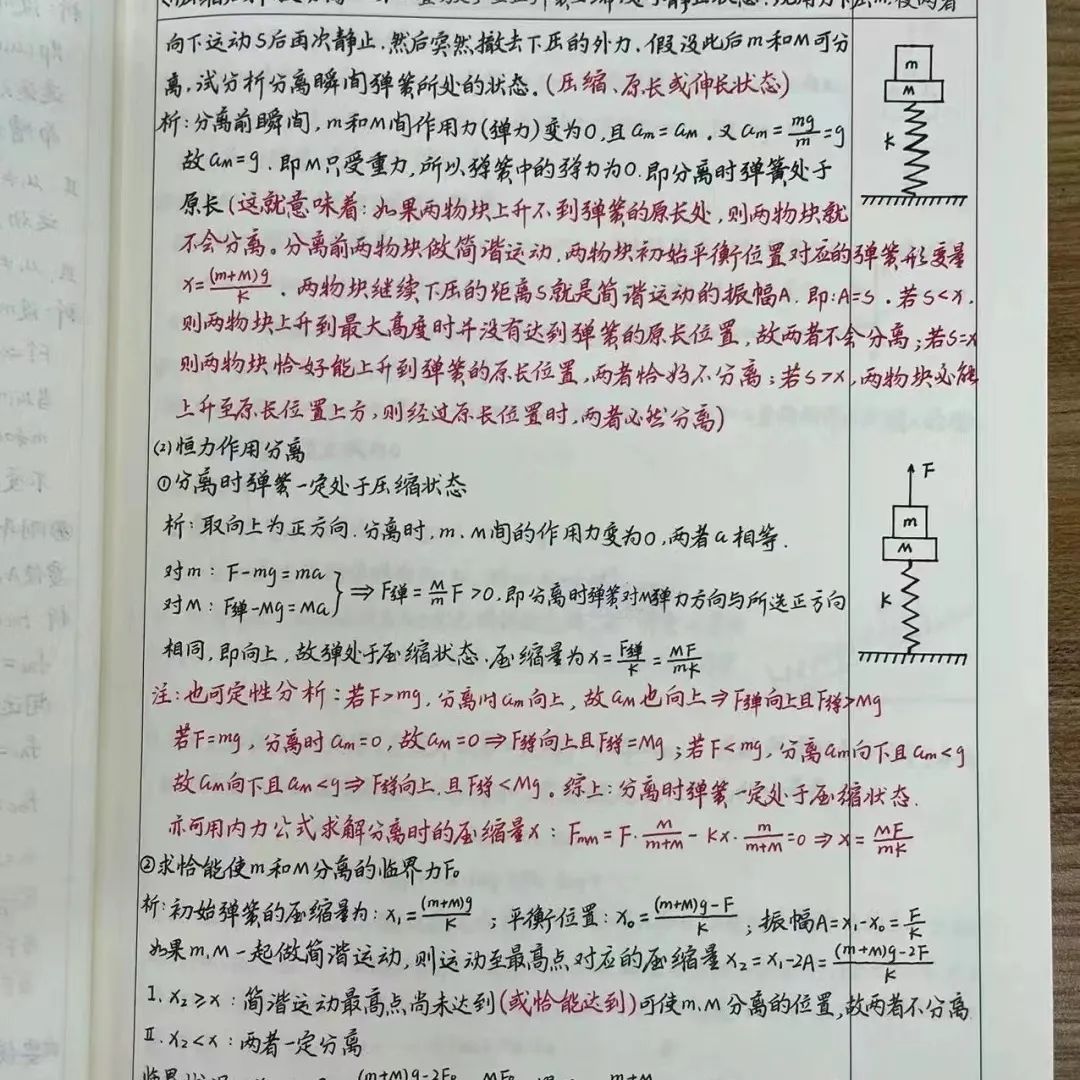 向下运动S后再次静止.然后突然撤去下压的外力.假设此后m和M可分
离,试分析分离瞬间弹簧所处的状态.(压缩、原长或伸长状态)
析:分离前瞬间,m和M间作用力(弹力)变为0,且am=aM.又am=mg/m=g
故aM=g.即M只受重力,所以弹簧中的弹力为0.即分离时弹簧处于
原长(这就意味着:如果两物块上升不到弹簧的原长处,则两物块就
不会分离。分离前两物块做简谐运动,两物块初始平衡位置对应的弹簧形变量
x=(m+M)g/K.两物块继续下压的距离S就是简谐运动的振幅A.即:A=S.若S<x,
则两物块上升到最大高度时并没有达到弹簧的原长位置,故两者不会分离;若S=x
则两物块恰好能上升到弹簧的原长位置,两者恰好不分离;若S>x,两物块必能
上升至原长位置上方,则经过原长位置时,两者必然分离)
m
M
K
(2)恒力作用分离
①分离时弹簧一定处于压缩状态
析:取向上为正方向.分离时,m、M间的作用力变为0,两者a相等.
对m: F-mg=ma
对M: F弹-Mg=Ma
⇒F弹=M/m F>0.即分离时弹簧对M弹力方向与所选正方向
相同,即向上,故弹处于压缩状态.压缩量为x=F弹/K=MF/mK
F
m
M
K
注:也可定性分析:若F>mg,分离时am向上,故aM也向上⇒F弹向上且F弹>Mg
若F=mg,分离时am=0,故aM=0⇒F弹向上且F弹=Mg;若F<mg,分离am向下且am<g
故aM向下且aM<g⇒F弹向上.且F弹<Mg。综上:分离时弹簧一定处于压缩状态.
亦可用内力公式求解分离时的压缩量x:FmM=F·M/(m+M)-Kx·m/(m+M)=0⇒x=MF/mK
②求恰能使m和M分离的临界力F₀
析:初始弹簧的压缩量为:x₁=(m+M)g/K;平衡位置:x₀=((m+M)g-F)/K;振幅A=x₁-x₀=F/K
如果m.M一起做简谐运动,则运动至最高点对应的压缩量x₂=x₁-2A=((m+M)g-2F)/K
Ⅰ.x₂≥x:简谐运动最高点尚未达到(或恰能达到)可使m.M分离的位置,故两者不分离
Ⅱ.x₂<x:两者一定分离